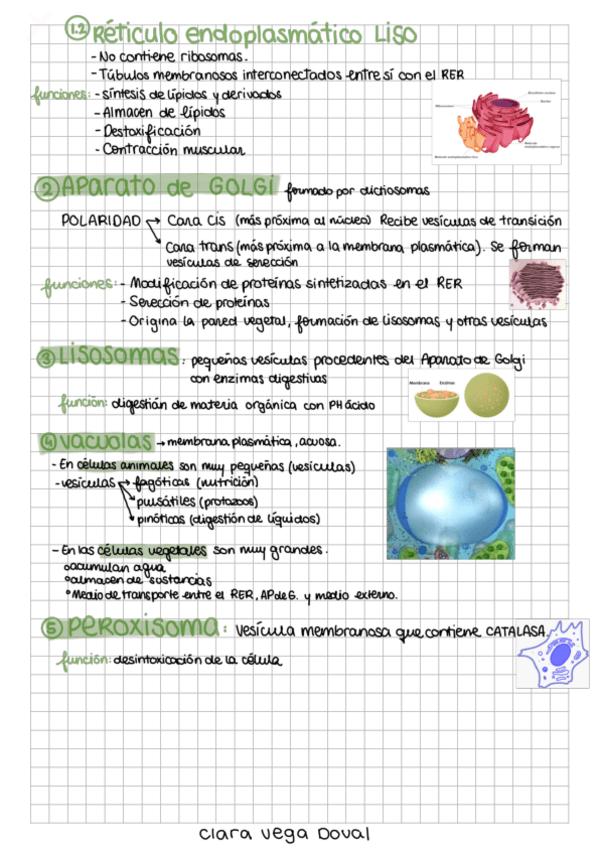 1.2 Réticulo endoplasmático Liso
- No contiene ribosomas.
- Túbulos membranosos interconectados entre sí con el RER
funciones: - síntesis de lípidos y derivados
- Almacen de lípidos
- Destoxificación
- Contracción muscular
② APARATO de GOLGI formado por dictiosomas
POLARIDAD → Cara Cis (más próxima al núcleo) Recibe vesículas de transición
Cara trans (más próxima a la membrana plasmática). Se forman
vesículas de sereción
funciones: - Modificación de proteínas sintetizadas en el RER
- Sereción de proteínas
- Origina la pared vegetal, formación de lisosomas y otras vesículas
③ LISOSOMAS: pequeñas vesículas procedentes del Aparato de Golgi
con enzimas digestivas
Membrana Enzimas
función: digestión de materia orgánica con PH ácido
④ vacuolas → membrana plasmática, acuosa.
- En células animales son muy pequeñas (vesículas)
- vesículas → fagóticas (nutrición)
pulsátiles (protozoos)
pinóticas (digestión de líquidos)
- En las células vegetales son muy grandes.
°acumulan agua
°almacen de sustancias
°Medio de transporte entre el RER, AP de G. y medio externo.
⑤ peroxisoma: Vesícula membranosa que contiene CATALASA.
función: desintoxicación de la célula
Clara Vega Doval